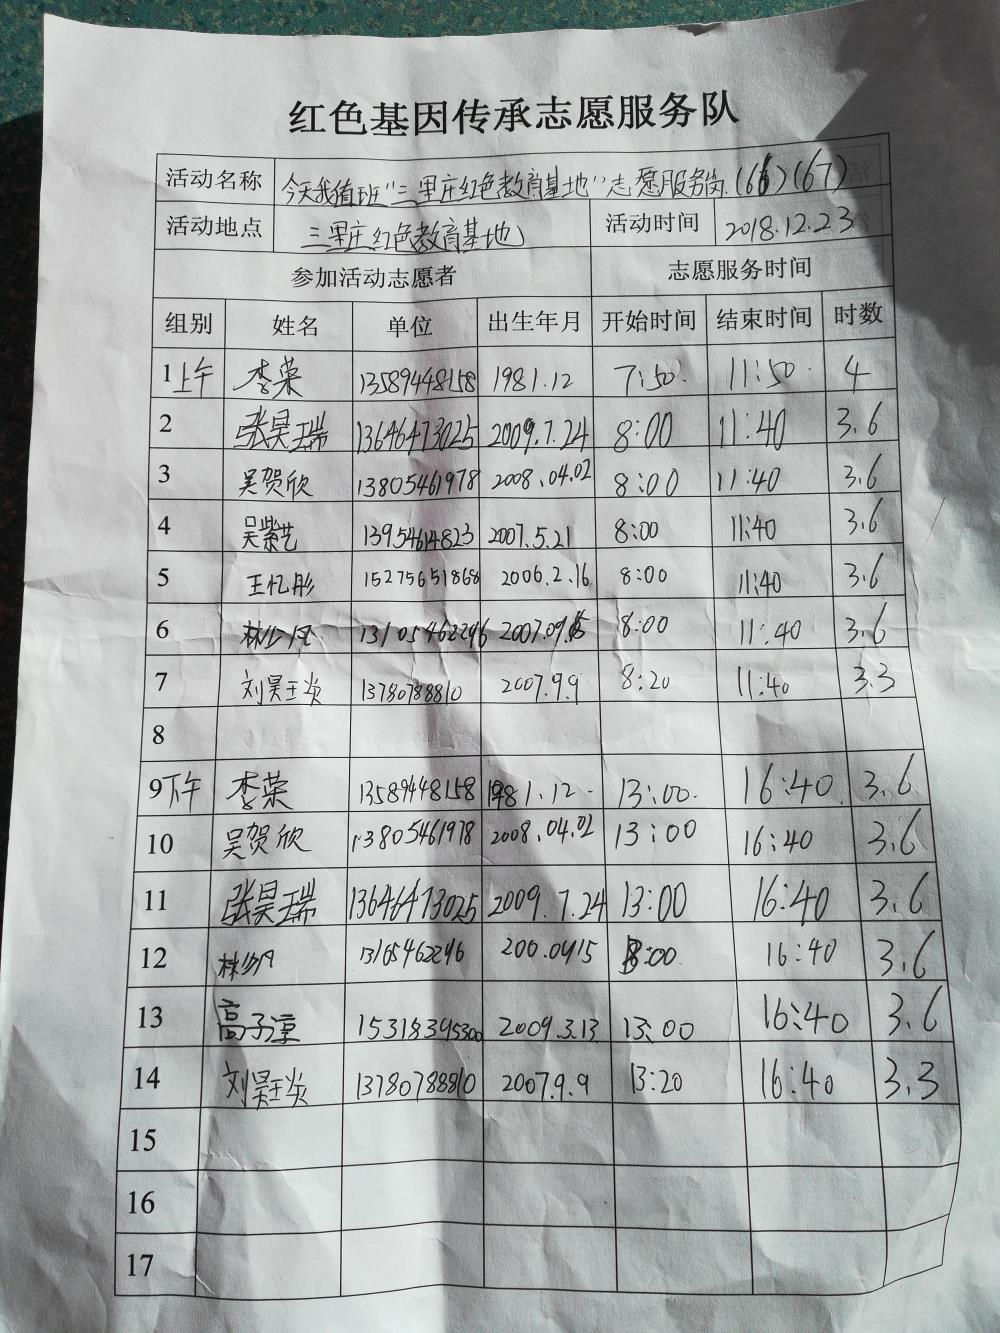 红色基因传承志愿服务队
活动名称 今天我值班"三里庄红色教育基地"志愿服务岗(66)(67)
活动地点 三里庄红色教育基地 活动时间 2018.12.23
参加活动志愿者 志愿服务时间
组别 姓名 单位 出生年月 开始时间 结束时间 时数
1上午 李荣 13589448158 1981.12 7:50. 11:50. 4
2 张昊瑞 13646473025 2009.7.24 8:00 11:40 3.6
3 吴贺欣 13805461978 2008.04.02 8:00 11:40 3.6
4 吴紫艺 13954614823 2007.5.21 8:00 11:40 3.6
5 王忆彤 15275651868 2006.2.16 8:00 11:40 3.6
6 林少凡 13105462296 2007.09.15 8:00 11:40 3.6
7 刘昊王炎 13780788810 2007.9.9 8:20 11:40 3.3
8
9下午 李荣 13589448158 1981.12. 13:00. 16:40 3.6
10 吴贺欣 13805461978 2008.04.02 13:00 16:40 3.6
11 张昊瑞 13646473025 2009.7.24 13:00 16:40 3.6
12 林少凡 13165462296 200.0915 :00 16:40 3.6
13 高子淳 15315395300 2009.3.13 13:00 16:40 3.6
14 刘昊王炎 13780788810 2007.9.9 13:20 16:40 3.3
15
16
17